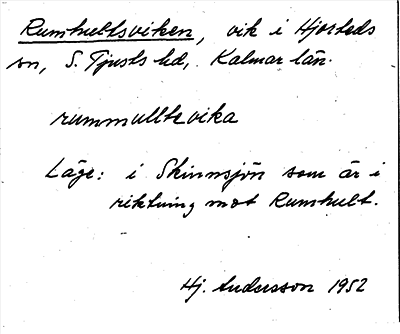 Rumhultsviken, vik i Hjorteds
sn, S. Tjusts hd, Kalmar län.
rummullteवika
Läge: i Skinnsjön som är i
riktning mot Rumhult.
Hj. Andersson 1952